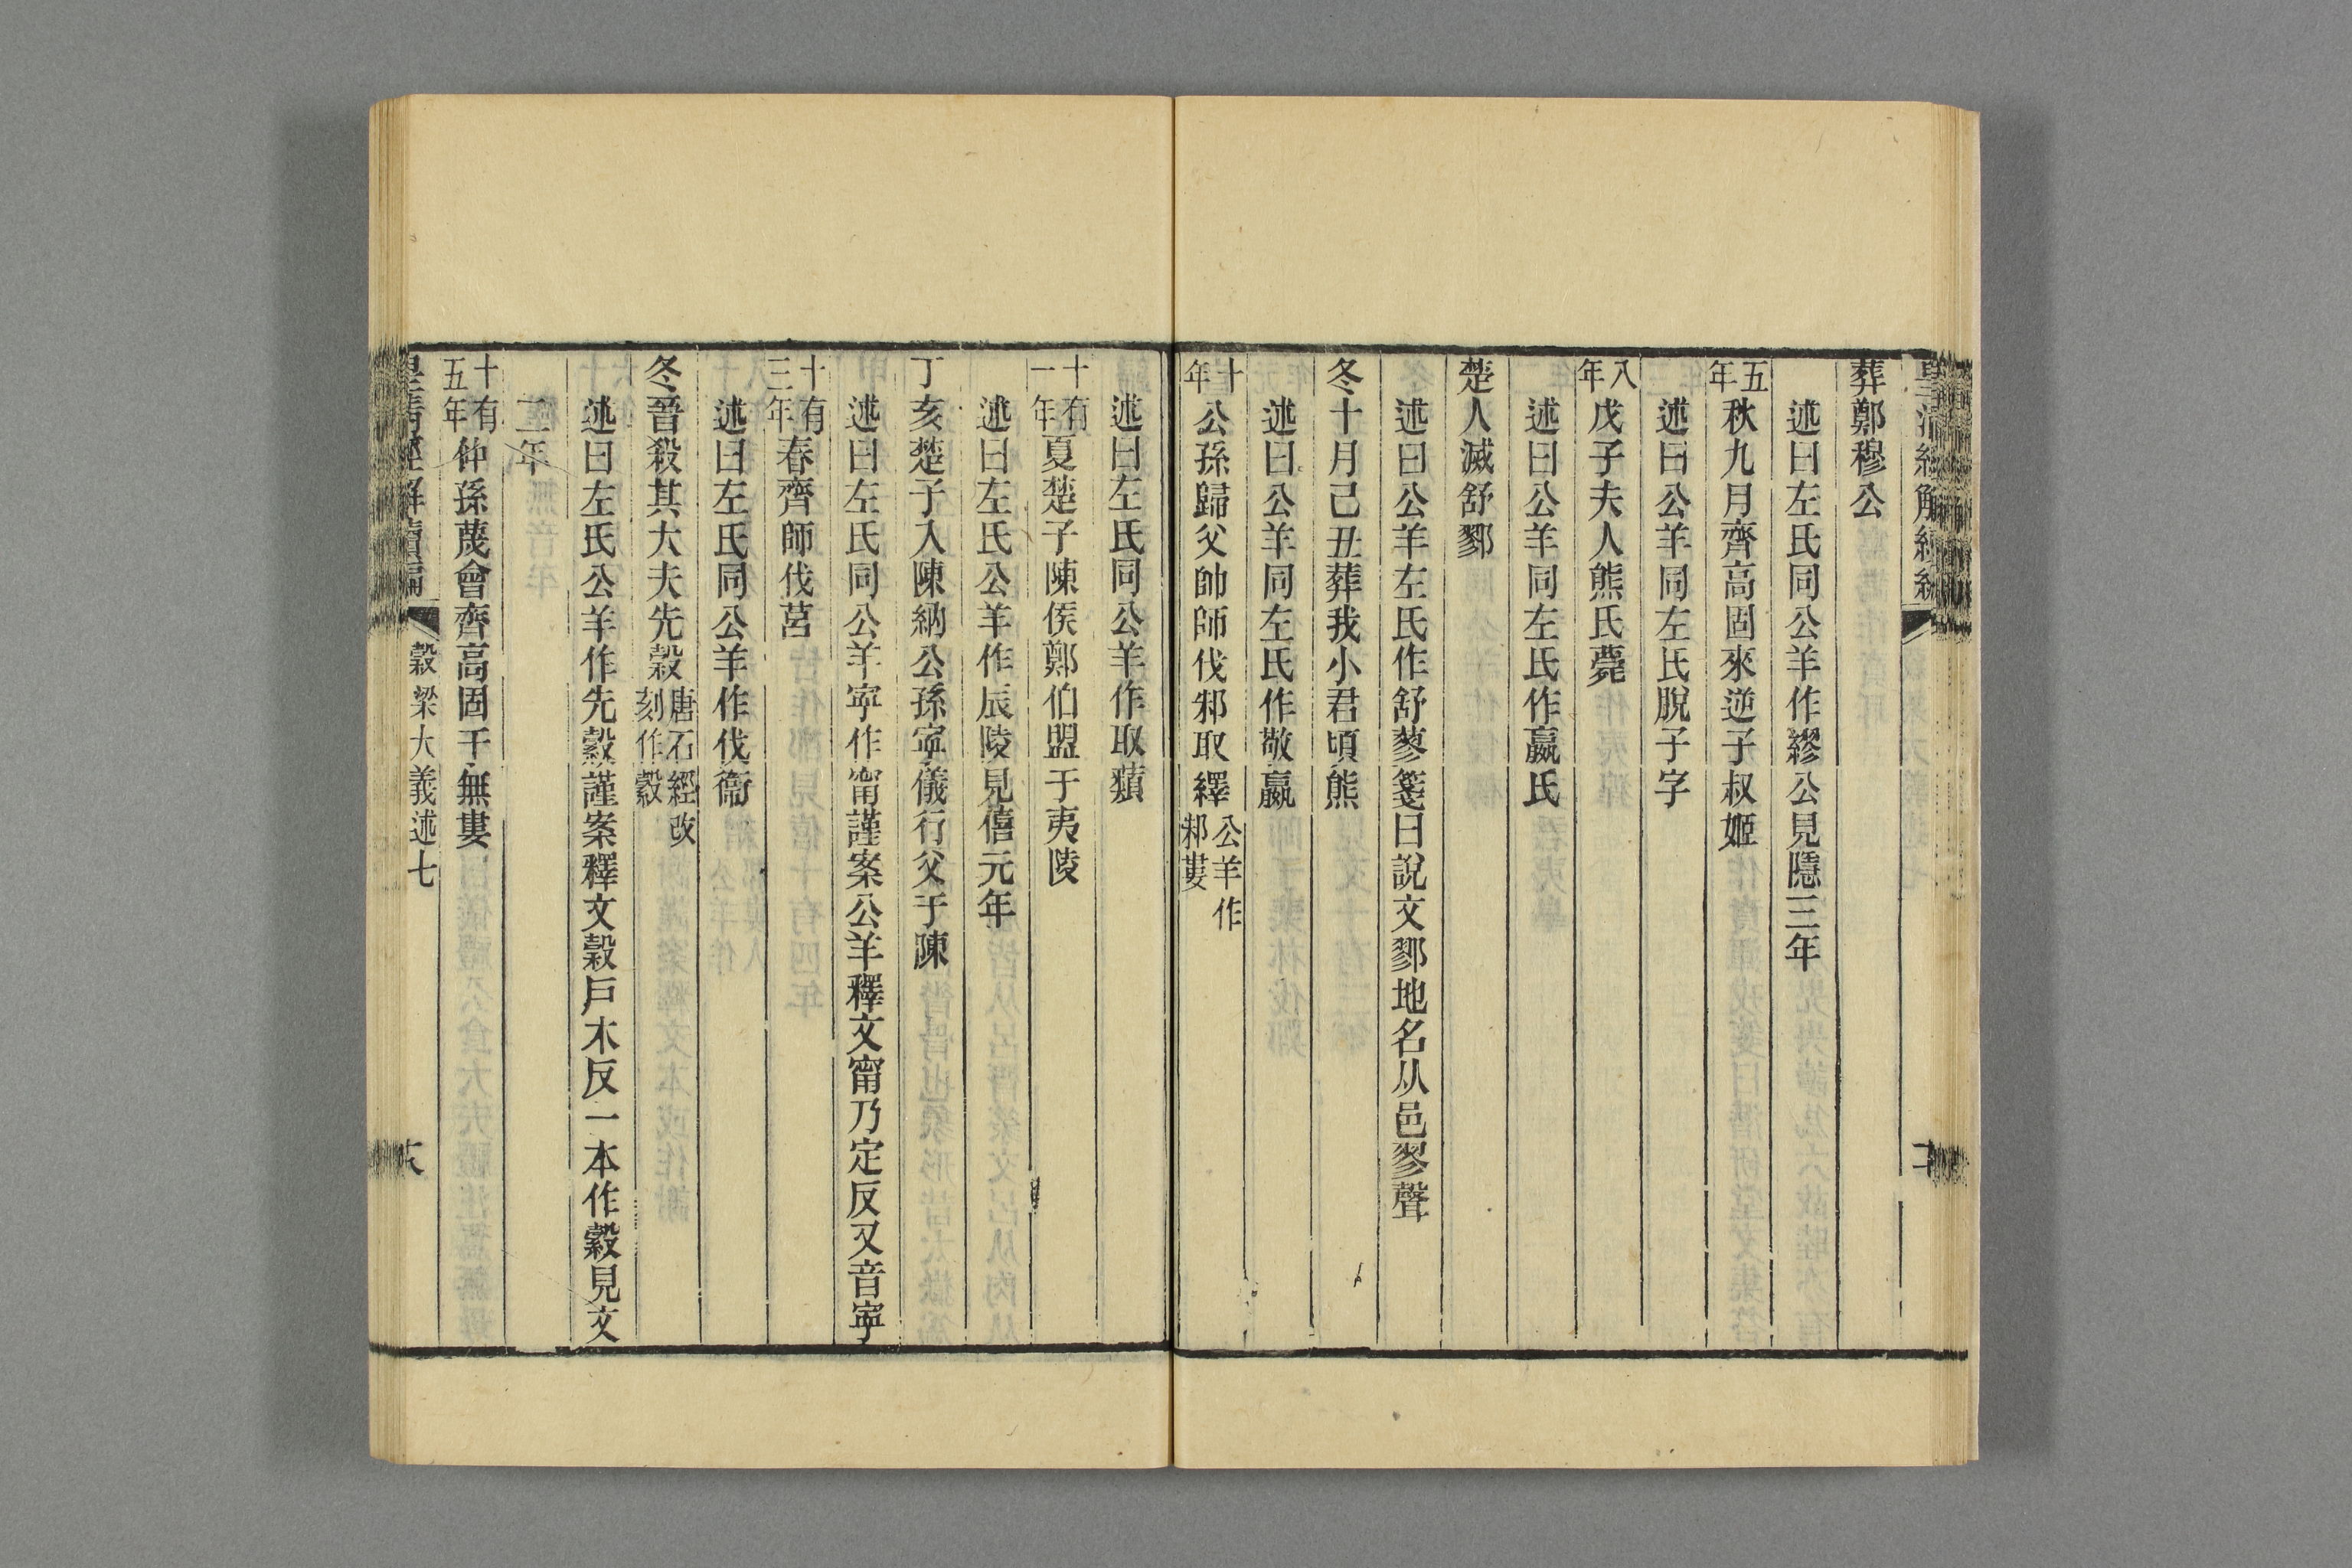 葬鄭穆公
述曰左氏同公羊作繆公見隱三年
五年秋九月齊高固來逆子叔姬
述曰公羊同左氏脫子字
八年戊子夫人熊氏薨
述曰公羊同左氏作嬴氏
楚人滅舒鄝
述曰公羊左氏作舒蓼箋曰說文鄝地名从邑翏聲
冬十月己丑葬我小君頃熊
述曰公羊同左氏作敬嬴
十年公孫歸父帥師伐邾取繹公羊作邾蔞
述曰左氏同公羊作取蘱
十有一年夏楚子陳侯鄭伯盟于夷陵
述曰左氏公羊作辰陵見僖元年
丁亥楚子入陳納公孫寧儀行父于陳
述曰左氏同公羊寧作甯謹案公羊釋文甯乃定反又音寧
十有三年春齊師伐莒
述曰左氏同公羊作伐衞
冬晉殺其大夫先縠唐石經改刻作穀
述曰左氏公羊作先縠謹案釋文縠戶木反一本作穀見文
二年
十有五年仲孫蔑會齊高固于無婁
皇清經解續編
穀梁大義述七
六